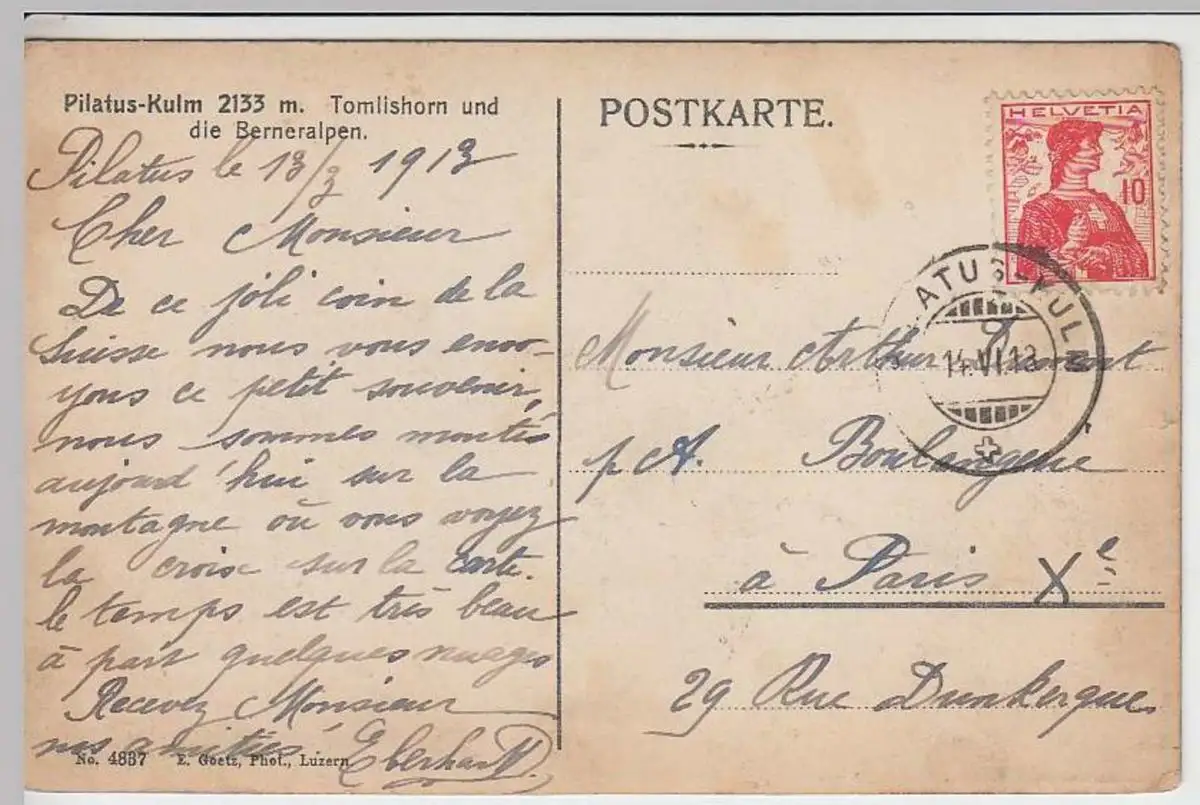 Pilatus-Kulm 2133 m. Tomlishorn und
die Berneralpen.
Pilatus le 13/3 1913
Cher Monsieur
De ce joli coin de la
Suisse nous vous envo-
yons ce petit souvenir,
nous sommes montés
aujourd'hui sur la
montagne où vous voyez
la croix sur la carte.
le temps est très beau
à part quelques nuages
Recevez Monsieur
nos amitiés. Eberhardt
No. 4837 E. Goetz, Phot., Luzern
POSTKARTE.
HELVETIA
10
ATUS-KULM
14.VI.13
Monsieur Arthur
p A. Boulangerie
à Paris Xe
29 Rue Dunkerque